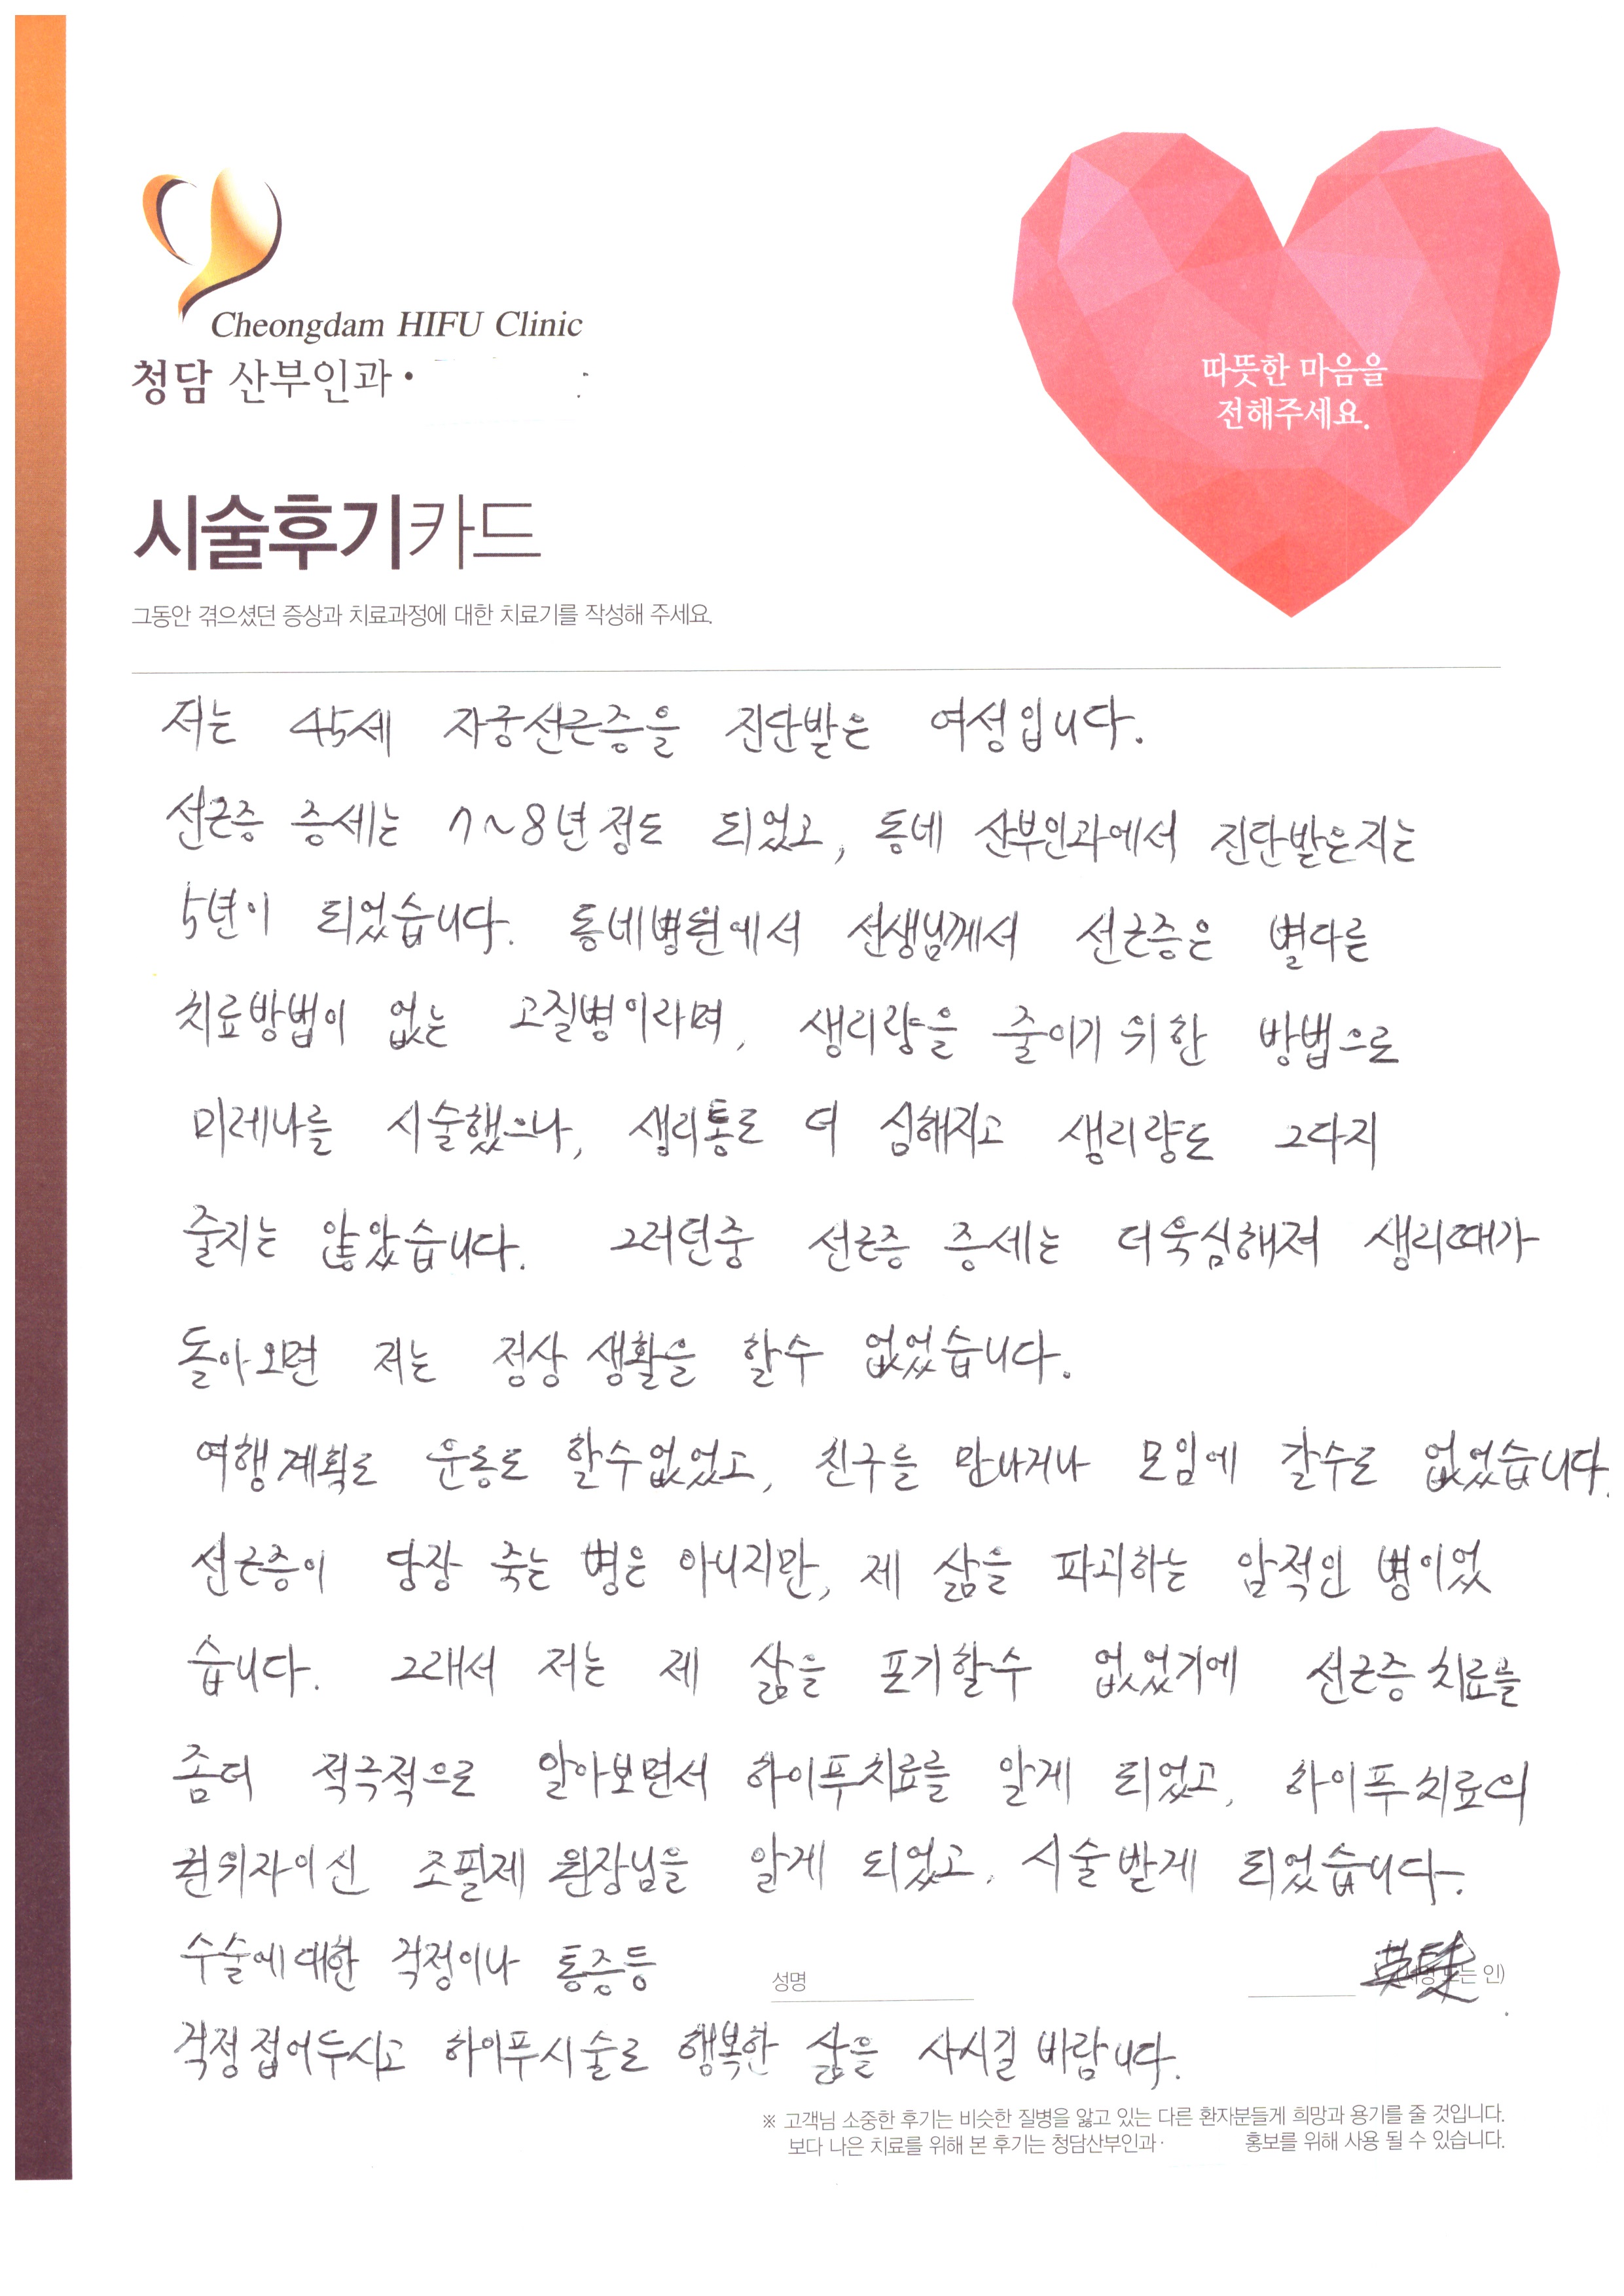 Cheongdam HIFU Clinic
청담 산부인과·
따뜻한 마음을
전해주세요.
시술후기카드
그동안 겪으셨던 증상과 치료과정에 대한 치료기를 작성해 주세요.
저는 45세 자궁선근증을 진단받은 여성입니다.
선근증 증세는 7~8년 정도 되었고, 동네 산부인과에서 진단받은지는
5년이 되었습니다. 동네병원에서 선생님께서 선근증은 별다른
치료방법이 없는 고질병이라며, 생리량을 줄이기 위한 방법으로
미레나를 시술했으나, 생리통도 더 심해지고 생리량도 그다지
줄지는 않았습니다. 그러던중 선근증 증세는 더욱심해져 생리때가
돌아오면 저는 정상 생활을 할수 없었습니다.
여행계획도 운동도 할수없었고, 친구를 만나거나 모임에 갈수도 없었습니다.
선근증이 당장 죽는 병은 아니지만, 제 삶을 파괴하는 암적인 병이었
습니다. 그래서 저는 제 삶을 포기할수 없었기에 선근증 치료를
좀더 적극적으로 알아보면서 하이푸치료를 알게 되었고, 하이푸치료의
권위자이신 조필제 원장님을 알게 되었고, 시술받게 되었습니다.
수술에대한 걱정이나 통증등
성명 인)
걱정접어두시고 하이푸시술로 행복한 삶을 사시길 바랍니다.
※ 고객님 소중한 후기는 비슷한 질병을 앓고 있는 다른 환자분들게 희망과 용기를 줄 것입니다.
보다 나은 치료를 위해 본 후기는 청담산부인과· 홍보를 위해 사용 될 수 있습니다.